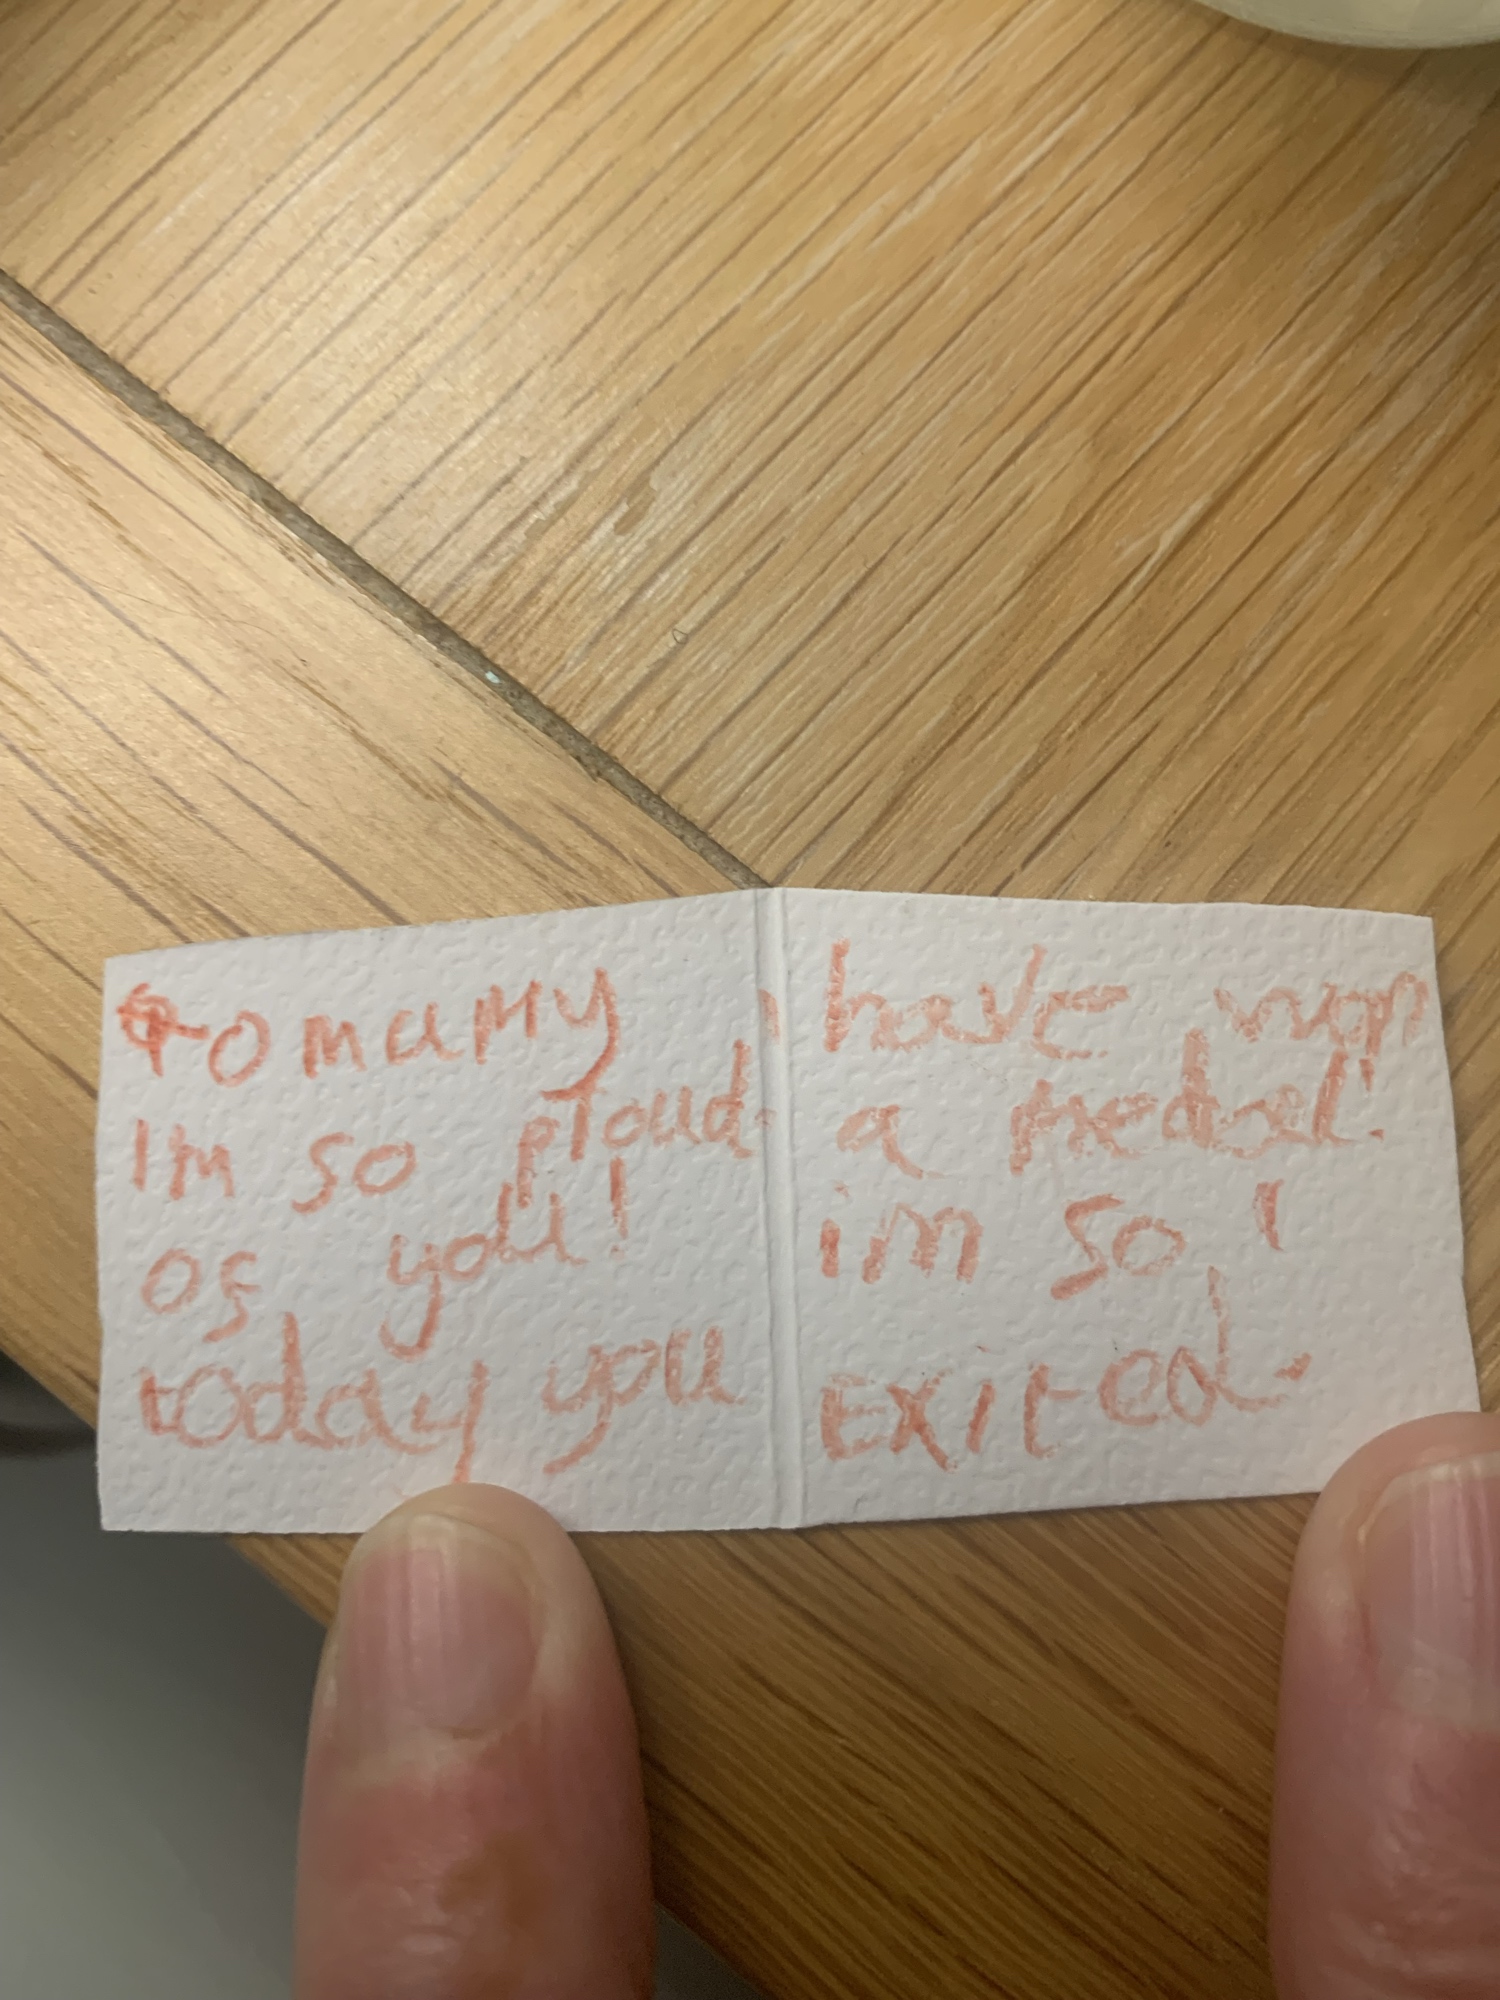 to mumy
I'm so proud
of you!
today you
have won
a medal!
im so
Exited.